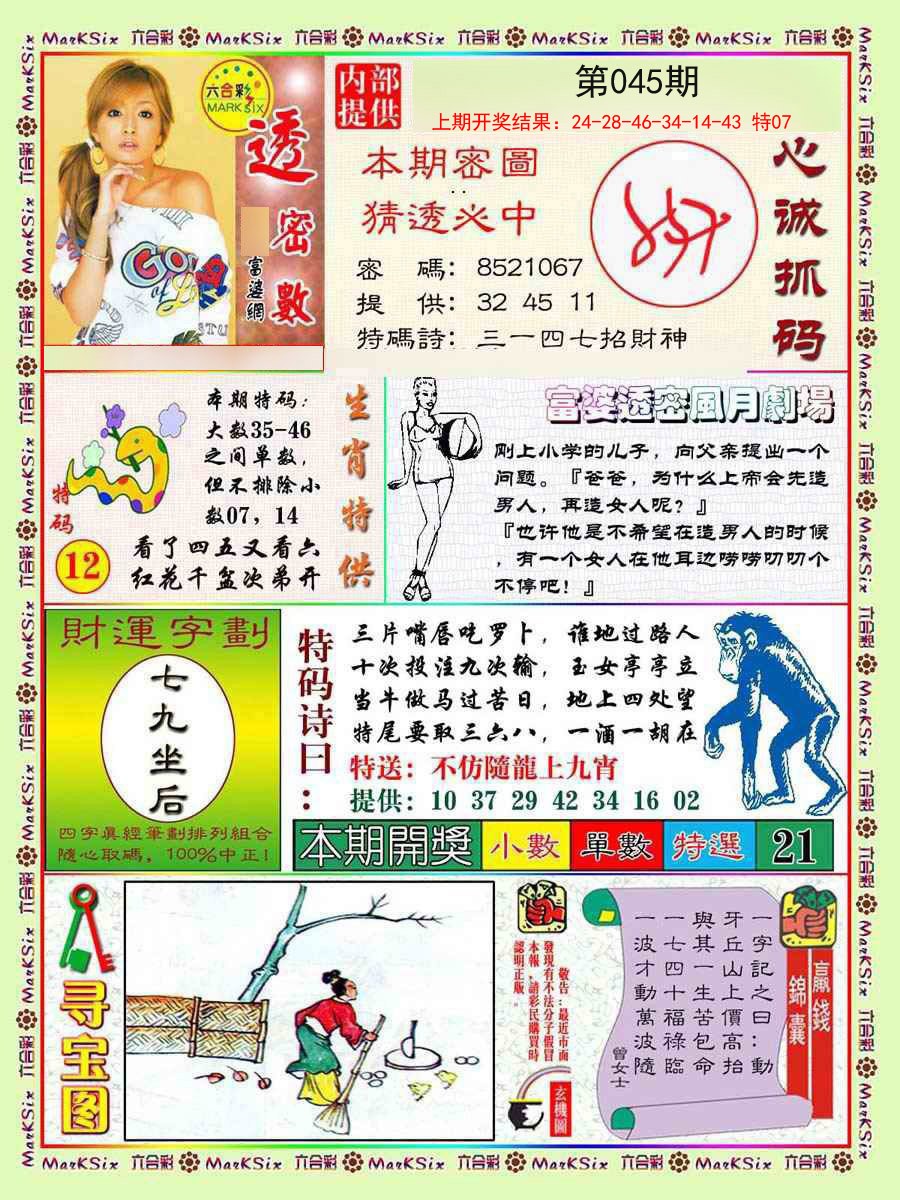 MarKSix 六合彩 MarKSix 六合彩 MarKSix 六合彩 MarKSix 六合彩 MarKSix 六合彩
六合彩
MARK SIX
透密數
富婆網
内部
提供
第045期
上期开奖结果：24-28-46-34-14-43 特07
本期密圖
猜透必中
密 碼：8521067
提 供：32 45 11
特碼詩：三一四七招財神
心诚抓码
特码
12
本期特码：
大数35-46
之间单数，
但不排除小
数07，14
看了四五又看六
红花千盆次弟开
生肖特供
富婆透密風月劇場
刚上小学的儿子，向父亲提出一个
问题。『爸爸，为什么上帝会先造
男人，再造女人呢？』
『也许他是不希望在造男人的时候
，有一个女人在他耳边唠唠叨叨个
不停吧！』
財運字劃
七九坐后
四字眞經筆劃排列組合
隨心取碼，100%中正！
特码诗曰：
三片嘴唇吃罗卜，谁地过路人
十次投注九次输，玉女亭亭立
当牛做马过苦日，地上四处望
特尾要取三六八，一酒一胡在
特送：不仿隨龍上九宵
提供：10 37 29 42 34 16 02
本期開獎 小數 單數 特選 21
寻宝图
敬告：最近市面
發現有不法分子假冒
本報，請彩民購買時
認明正版。
玄機圖
贏錢
錦囊
一字記之曰：動
牙丘山上價高抬
與其一生苦包命
一七四十福祿臨
一波才動萬波隨
曾女士
MarKSix 六合彩 MarKSix 六合彩 MarKSix 六合彩 MarKSix 六合彩 MarKSix 六合彩